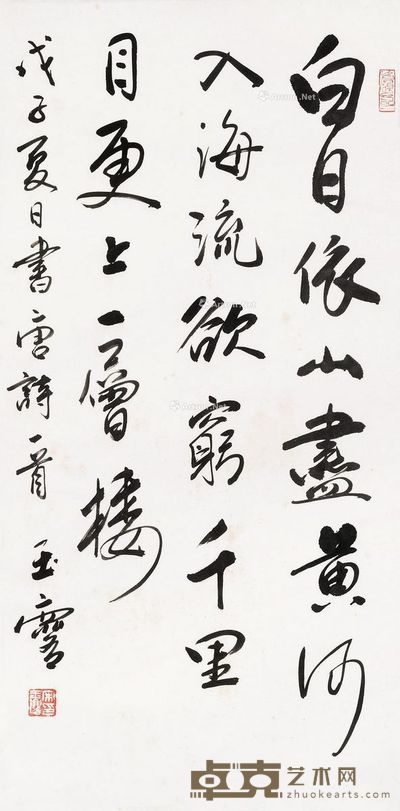 白日依山盡黃河
入海流欲窮千里
目更上一層樓
戊子夏日書唐詩一首 玉
卓克艺术网
www.zhuokearts.com